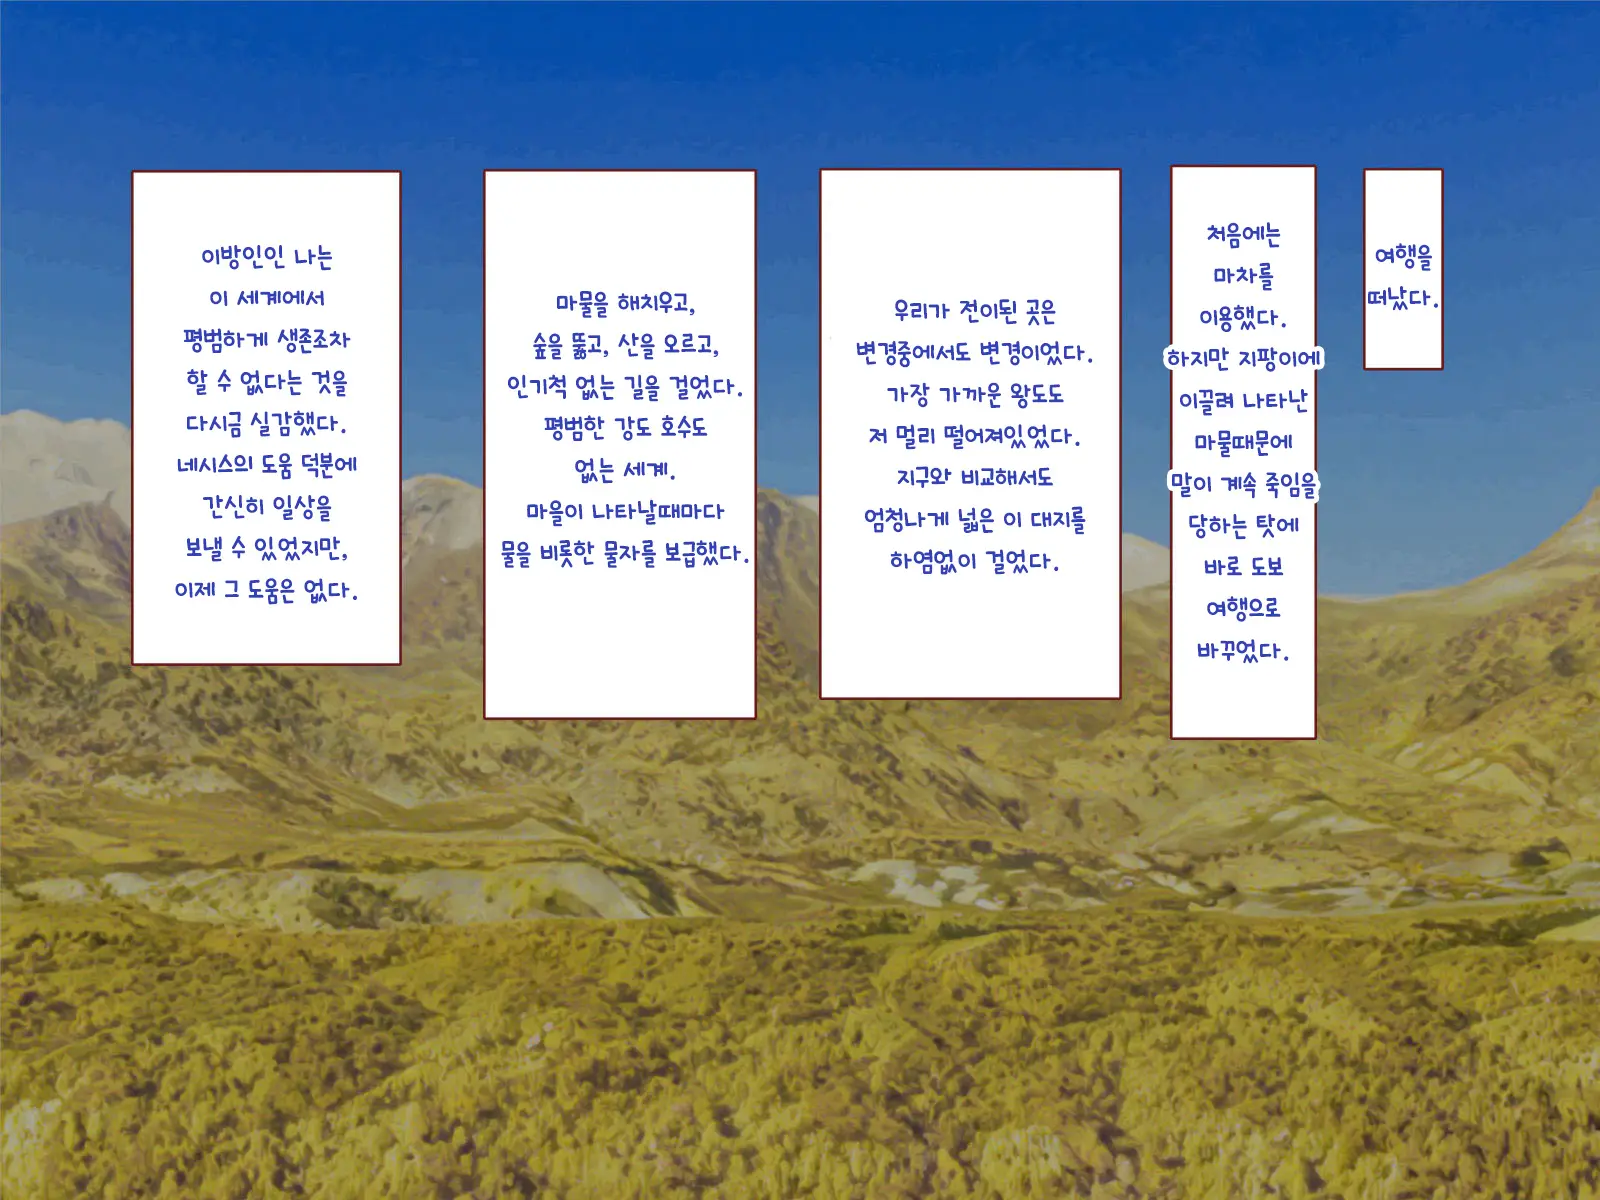 여행을
떠났다.
처음에는
마차를
이용했다.
하지만 지팡이에
이끌려 나타난
마물때문에
말이 계속 죽임을
당하는 탓에
바로 도보
여행으로
바꾸었다.
우리가 전이된 곳은
변경중에서도 변경이었다.
가장 가까운 왕도도
저 멀리 떨어져있었다.
지구와 비교해서도
엄청나게 넓은 이 대지를
하염없이 걸었다.
마물을 해치우고,
숲을 뚫고, 산을 오르고,
인기척 없는 길을 걸었다.
평범한 강도 호수도
없는 세계.
마을이 나타날때마다
물을 비롯한 물자를 보급했다.
이방인인 나는
이 세계에서
평범하게 생존조차
할 수 없다는 것을
다시금 실감했다.
네시스의 도움 덕분에
간신히 일상을
보낼 수 있었지만,
이제 그 도움은 없다.